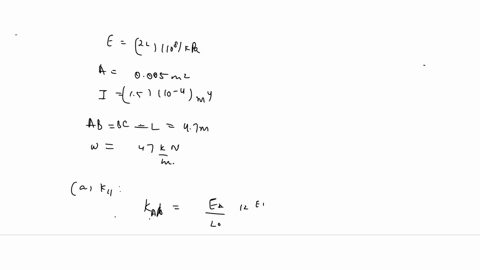 E = (22) (10⁶) kPa
A = 0.005 m²
I = (1.5) (10⁻⁴) m⁴
AB = BC = L = 4.7m
w = 47 kN/m.
(a) k₁₁ :
K_AB =